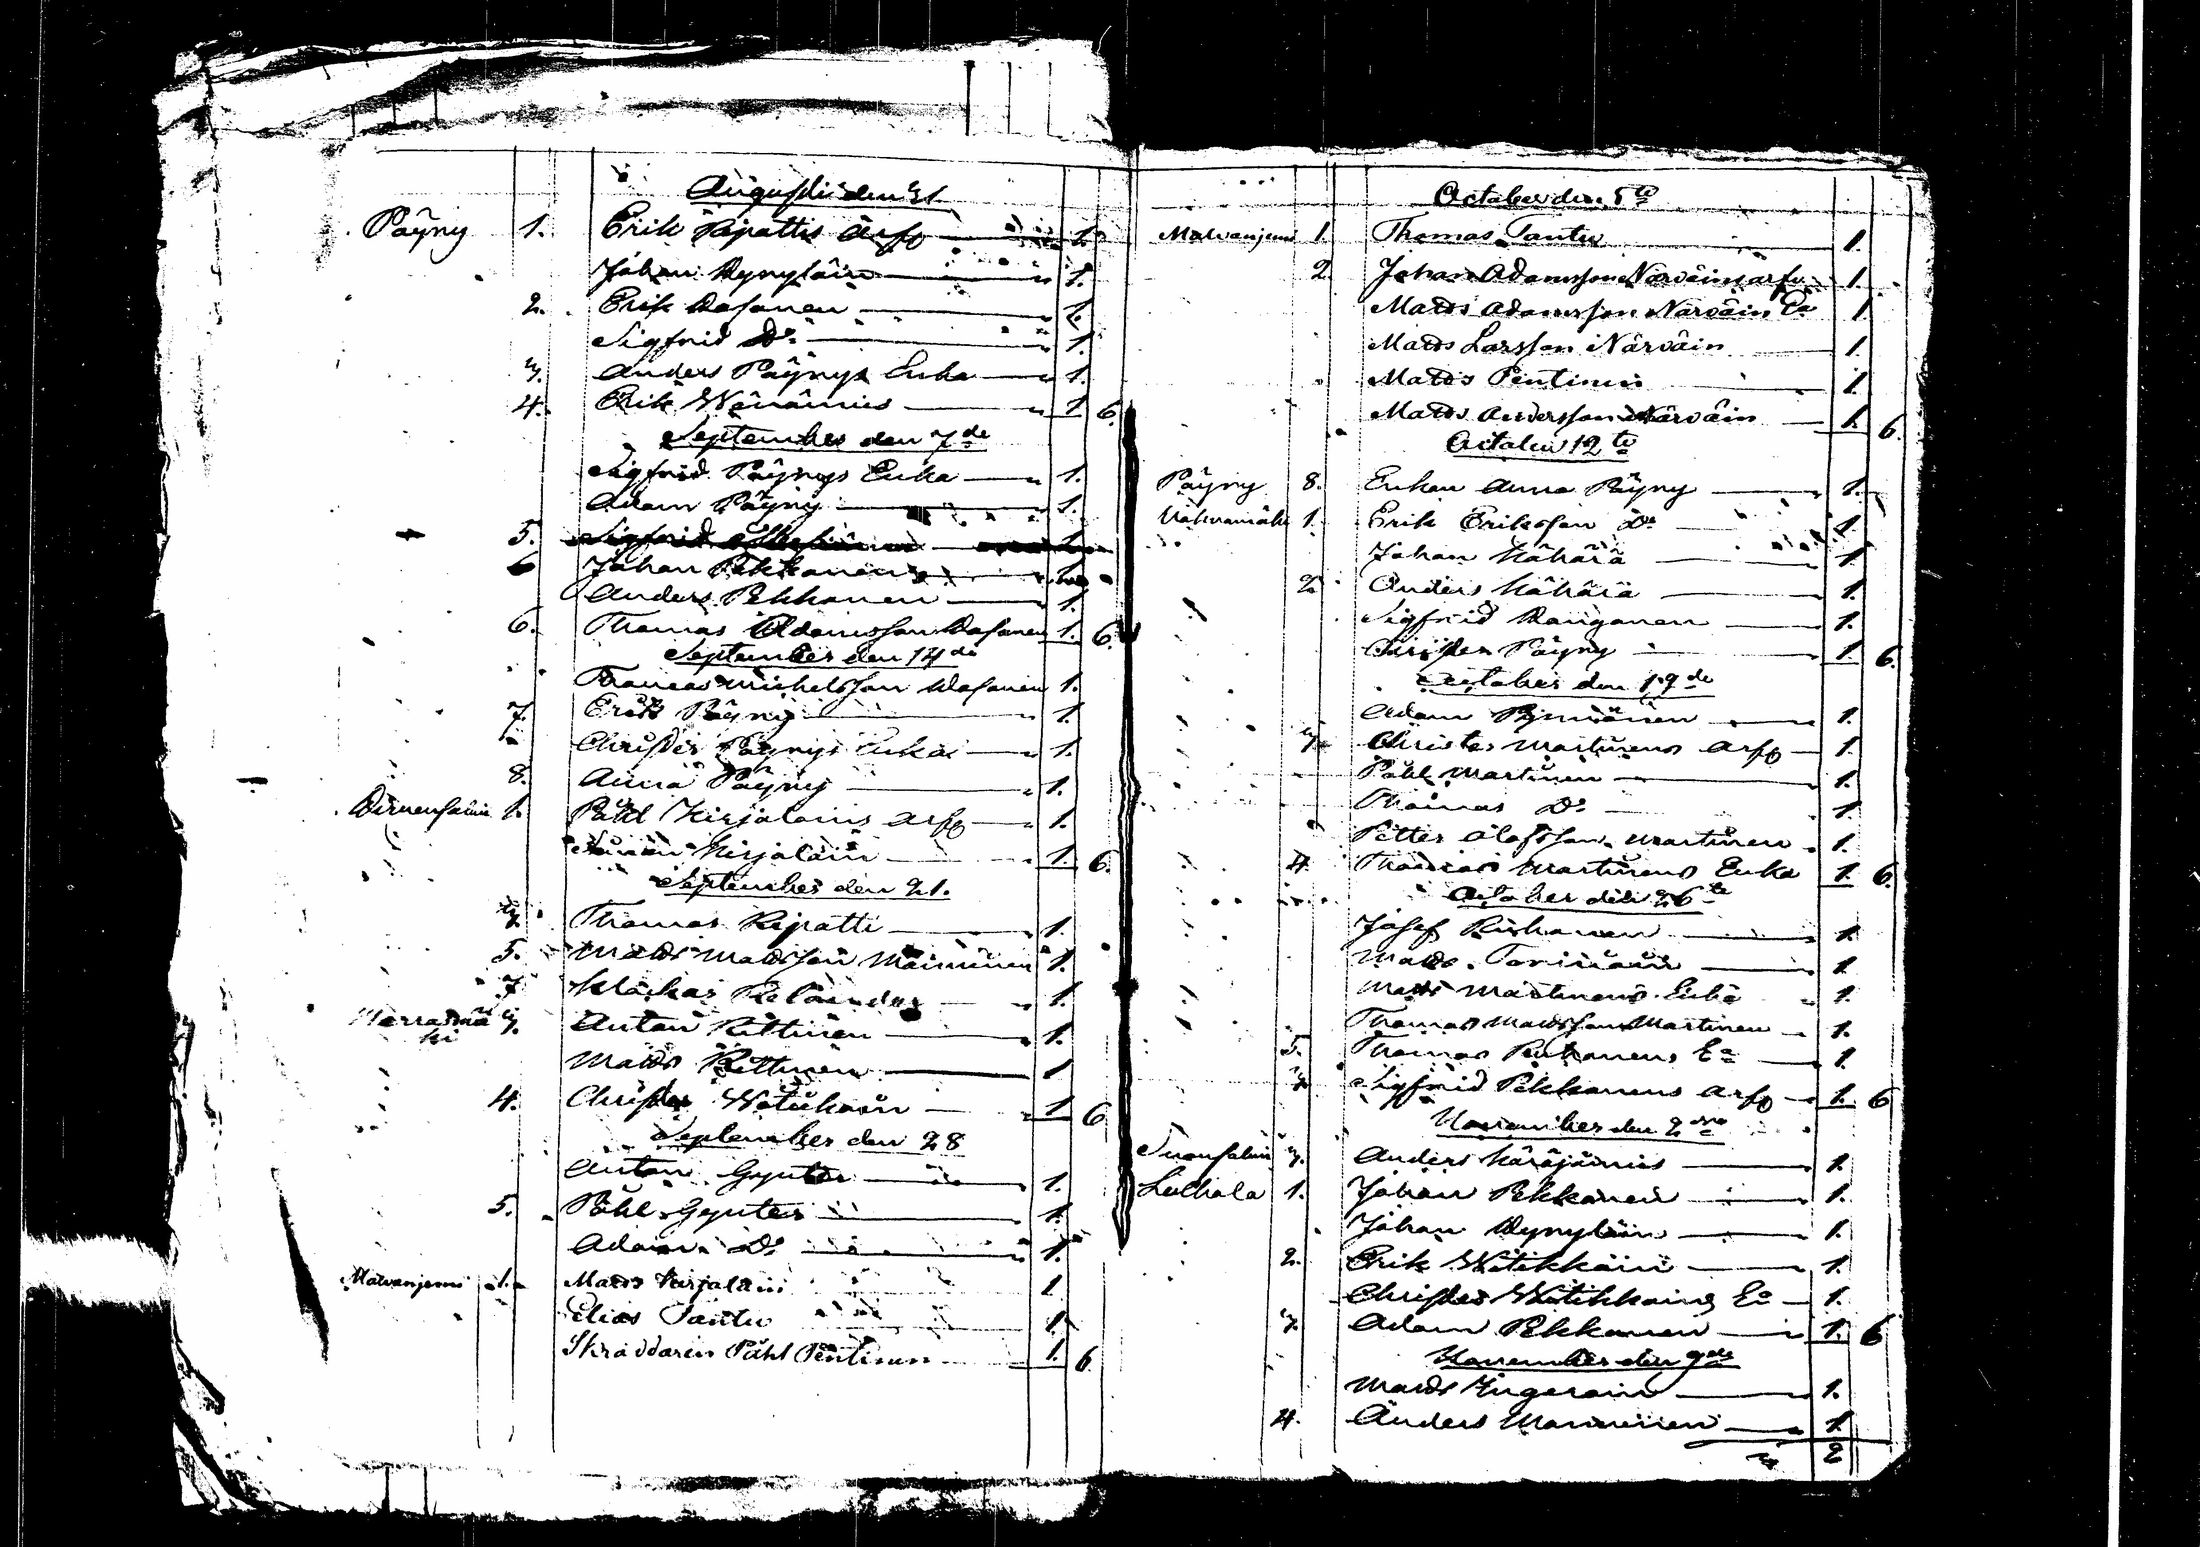 Augusti den 31.
Päÿny 1. Erik Ripattis Arfv 1.
Johan Dynyläin 1.
2. Erik Wasanen 1.
Sigfrid Do 1.
3. Anders Päÿnys Enka 1.
4. Erik Wänännies 1. 6.
September den 7de
Sigfrid Päÿnys Enka 1.
Adam Päÿny 1.
5. Sigfrid 1.
6 Johan Pekkanen 1.
Anders Pekkanen 1.
6. Thomas Adamsson Wasanen 1. 6.
September den 14de
Thomas Michelsson Wasanen 1.
7. Erik Päÿny 1.
Christer Päÿnys Enka 1.
8. Anna Päÿny 1.
1. Påhl Kirjalains Arfv 1.
Simon Kirjalain 1. 6.
September den 21.
3. Thomas Ripatti 1.
5. Mats Matsson Manninen 1.
7. Relander 1.
Harramä
ki 3. Anton Kettunen 1.
Mats Kettunen 1
4. Christer Watikain 1 6
September den 28
Anton Gynter 1.
5. Påhl Gynter 1.
Adam Do 1.
Matvanjemi 1. Mats Kirjalain 1
Elias Tantu 1.
Skräddaren Påhl Pentinen 1. 6
October den 5te
Matvanjemi 1. Thomas Tantu 1.
2. Johan Adamsson Närväins arfv 1.
Mats Adamsson Närväin Ea 1.
Mats Larsson Närväin 1.
Mats Pentinen 1.
Mats Andersson Närväin 1. 6.
October 12te
Päÿny 8. Enkan Anna Päÿny 1.
1. Erik Eriksson Do 1.
Johan Kähärä 1.
2. Anders Kähärä 1.
Sigfrid Kanganen 1.
Christer Päÿny 1. 6.
October den 19de
Adam 1.
3. Christer Martinens Arfv 1.
Påhl Martinen 1.
Thomas Do 1
Petter Olofsson Martinen 1.
4. Thomas Martinens Enka 1. 6.
October den 26te
Josef 1.
Mats 1.
Mats Martinens Enka 1.
Thomas Matsson Martinen 1.
5. Thomas Pekkanens Ea 1.
Sigfrid Pekkanens Arfv 1. 6
November den 2dra
3. Anders Käräjämies 1.
Leckala 1. Johan Pekkanen 1.
Johan Dynyläin 1.
2. Erik Witikkäin 1.
Christer Witikkains Ea 1.
3. Adam Pekkanen 1. 6
November den 9de
Mats Ingerain 1.
4. Anders Manninen 1.
2